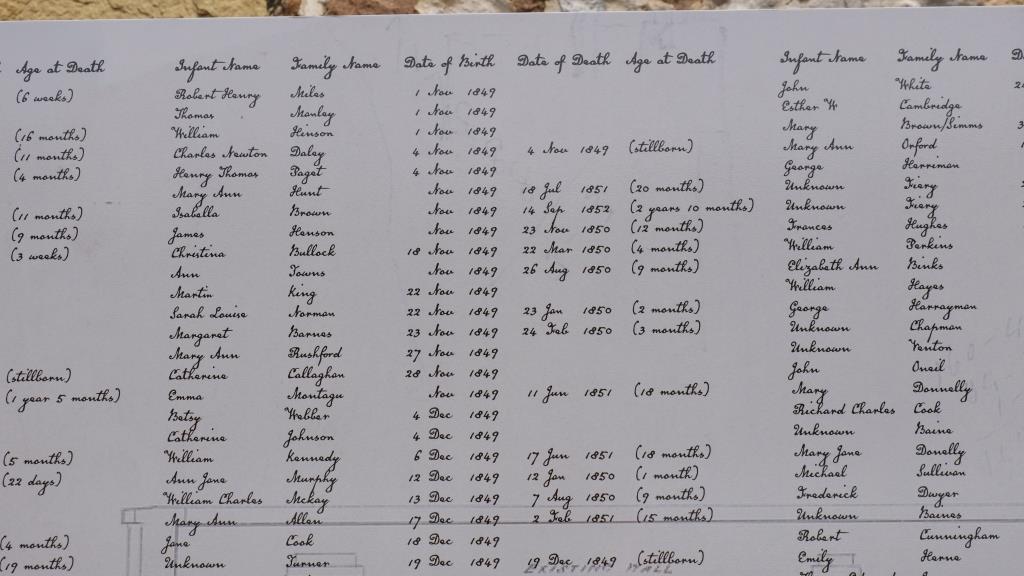 Age at Death Infant Name Family Name Date of Birth Date of Death Age at Death Infant Name Family Name
(6 weeks) Robert Henry Miles 1 Nov 1849 John White
Thomas Manley 1 Nov 1849 Esther W Cambridge
(16 months) William Hinson 1 Nov 1849 Mary Brown/Simms
(11 months) Charles Newton Daley 4 Nov 1849 4 Nov 1849 (stillborn) Mary Ann Orford
(4 months) Henry Thomas Paget 4 Nov 1849 George Herriman
Mary Ann Hunt Nov 1849 18 Jul 1851 (20 months) Unknown Fiery
(11 months) Isabella Brown Nov 1849 14 Sep 1852 (2 years 10 months) Unknown Fiery
(9 months) James Henson Nov 1849 23 Nov 1850 (12 months) Frances Hughes
(3 weeks) Christina Bullock 18 Nov 1849 22 Mar 1850 (4 months) William Perkins
Ann Towns Nov 1849 26 Aug 1850 (9 months) Elizabeth Ann Binks
Martin King 22 Nov 1849 William Hayes
Sarah Louise Norman 22 Nov 1849 23 Jan 1850 (2 months) George Harrayman
Margaret Barnes 23 Nov 1849 24 Feb 1850 (3 months) Unknown Chapman
Mary Ann Rushford 27 Nov 1849 Unknown Venton
(stillborn) Catherine Callaghan 28 Nov 1849 John Oneil
(1 year 5 months) Emma Montagu Nov 1849 11 Jun 1851 (18 months) Mary Donnelly
Betsy Webber 4 Dec 1849 Richard Charles Cook
Catherine Johnson 4 Dec 1849 Unknown Baine
(5 months) William Kennedy 6 Dec 1849 17 Jun 1851 (18 months) Mary Jane Donelly
(22 days) Ann Jane Murphy 12 Dec 1849 12 Jan 1850 (1 month) Michael Sullivan
William Charles McKay 13 Dec 1849 7 Aug 1850 (9 months) Frederick Dwyer
Mary Ann Allen 17 Dec 1849 2 Feb 1851 (15 months) Unknown Baines
(4 months) Jane Cook 18 Dec 1849 Robert Cunningham
(19 months) Unknown Turner 19 Dec 1849 19 Dec 1849 (stillborn) Emily Herne
EXISTING WALL